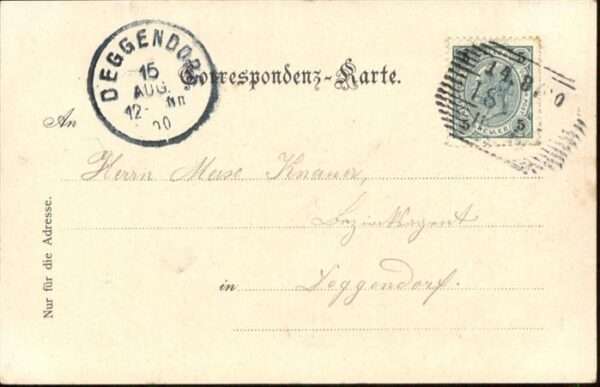 DEGGENDORF
15
AUG.
12
00
Correspondenz-Karte.
14.8
5
5
An
Herrn Knauer,
Bezirksagent
in Deggendorf.
Nur für die Adresse.